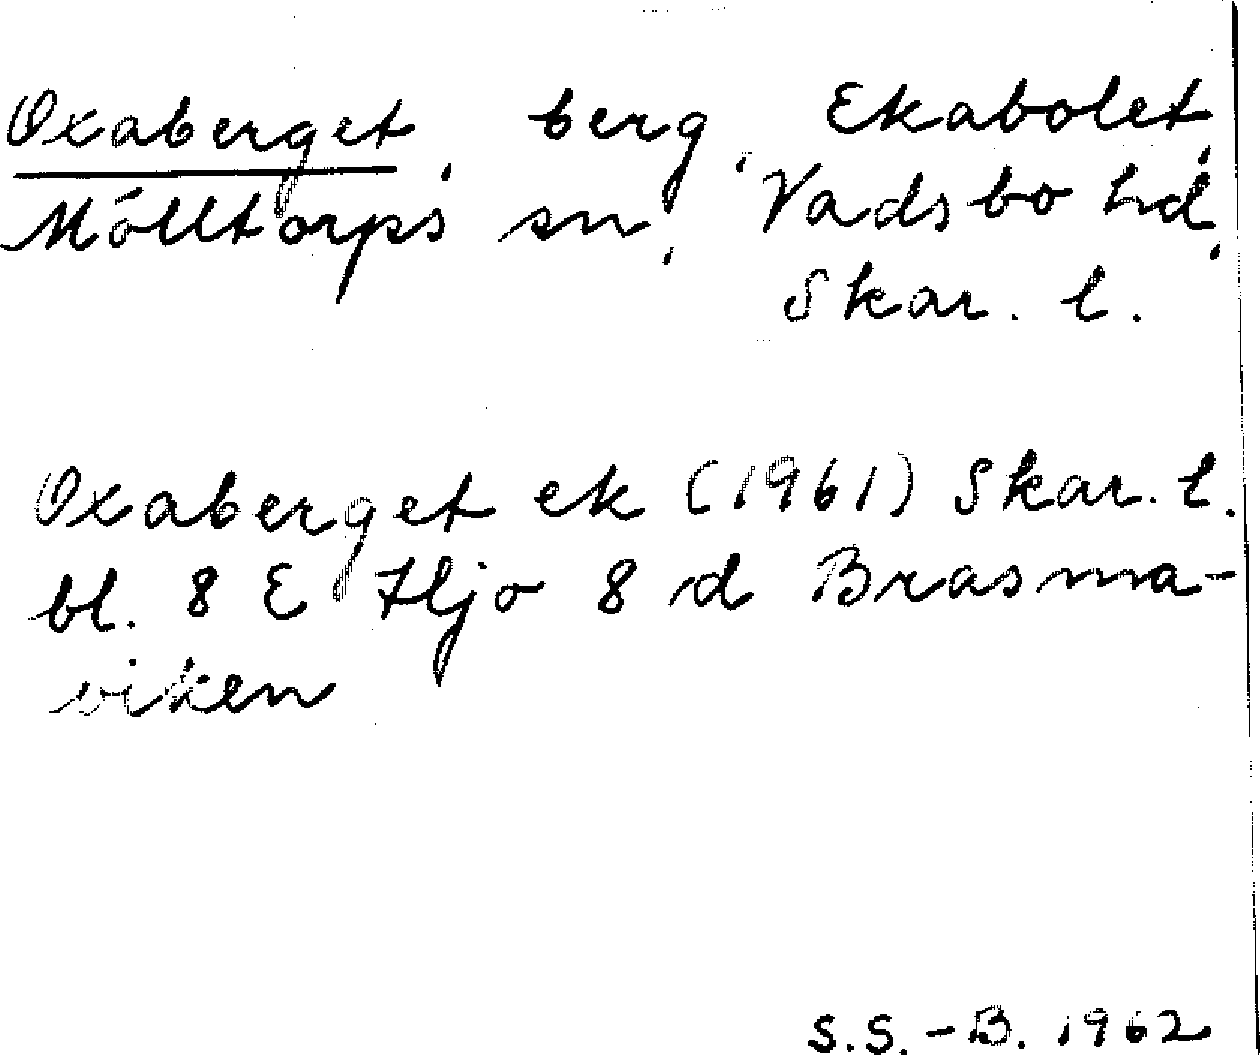 Oxaberget, berg, Ekabolet,
Mölltorps sn, Vadsbo hd,
Skar. l.
Oxaberget ek (1961) Skar. l.
bl. 8 E Hjo 8 d Brasma-
viken
S.S.-B. 1962